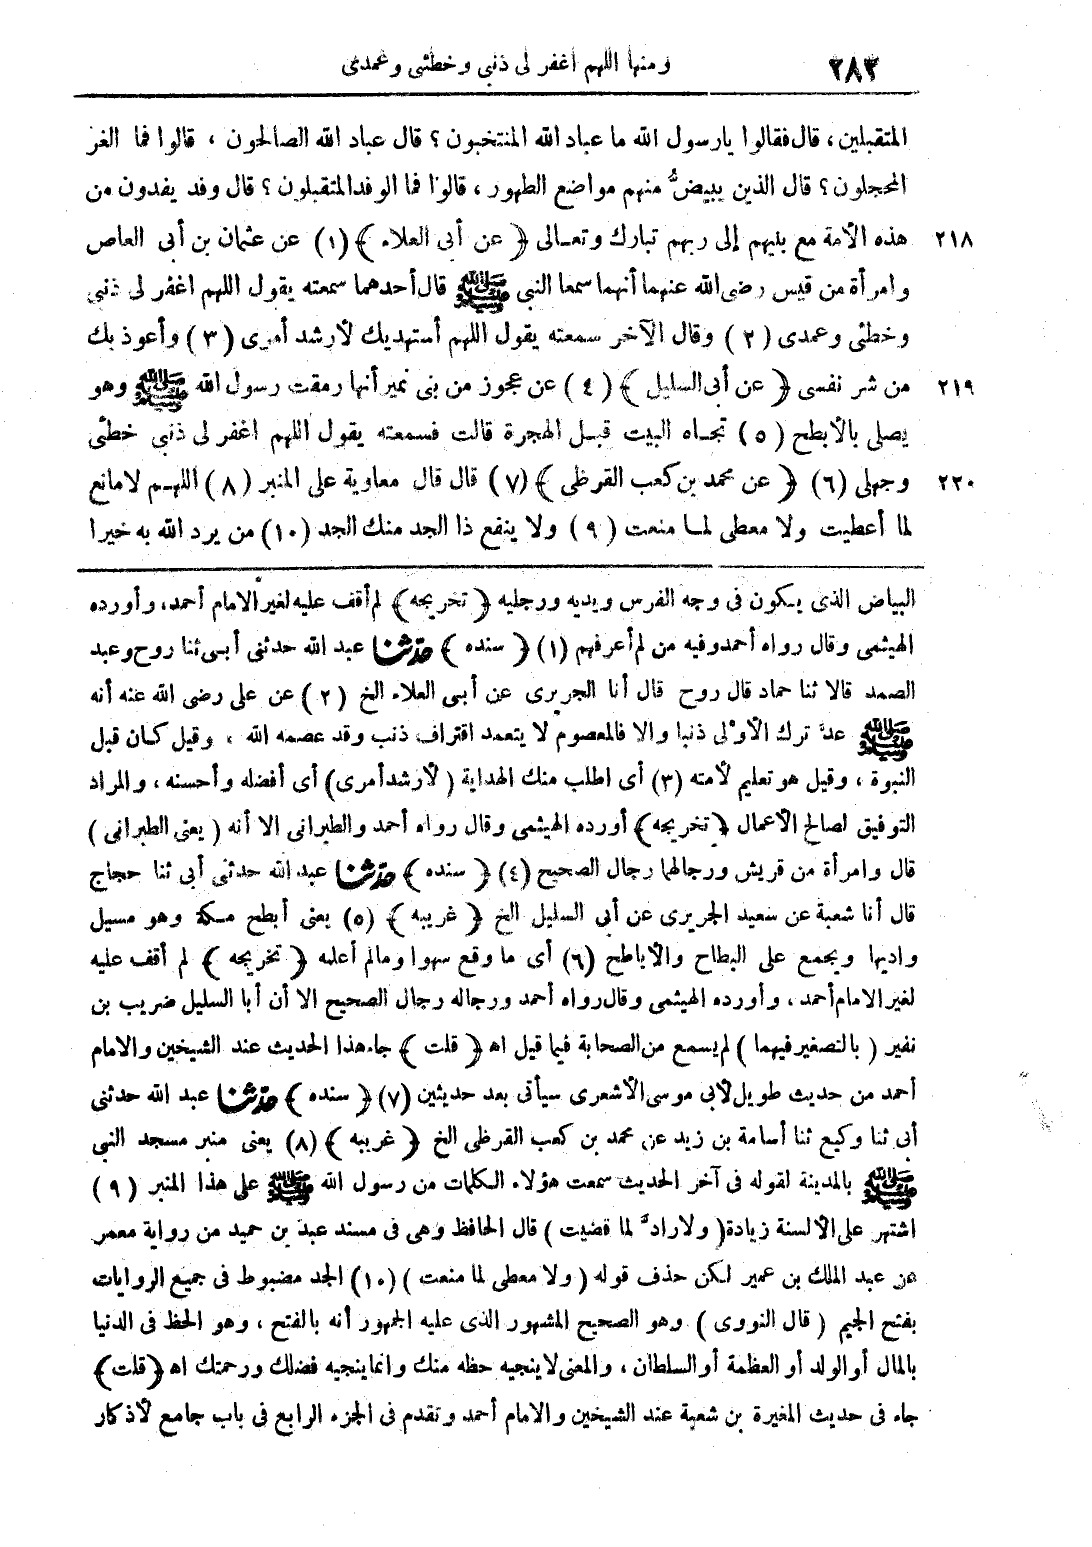 ٢٨٣ ومنها اللهم اغفر لى ذنبى وخطئى وعمدى
المتقبلين، قال فقالوا يا رسول الله ما عباد الله المنتخبون؟ قال عباد الله الصالحون، قالوا فما الغر
المحجلون؟ قال الذين يبيضُّ منهم مواضع الطهور، قالوا فما الوفد المتقبلون؟ قال وفد يفدون من
٢١٨ هذه الأمة مع بليهم إلى ربهم تبارك وتعالى ﴿ عن أبى العلاء ﴾ (١) عن عثمان بن أبى العاص
وامرأة من قيس رضى الله عنهما أنهما سمعا النبى ﷺ قال أحدهما سمعته يقول اللهم اغفر لى ذنبى
وخطئى وعمدى (٢) وقال الآخر سمعته يقول اللهم أستهديك لأرشد أمرى (٣) وأعوذ بك
٢١٩ من شر نفسى ﴿ عن أبى السليل ﴾ (٤) عن عجوز من بنى نمير أنها رمقت رسول الله ﷺ وهو
يصلى بالأبطح (٥) تجاه البيت قبل الهجرة قالت فسمعته يقول اللهم اغفر لى ذنبى خطئى
٢٢٠ وجهلى (٦) ﴿ عن محمد بن كعب القرظى ﴾ (٧) قال قال معاوية على المنبر (٨) اللهم لا مانع
لما أعطيت ولا معطى لما منعت (٩) ولا ينفع ذا الجد منك الجد (١٠) من يرد الله به خيرا
البياض الذى يكون فى وجه الفرس ويديه ورجليه ﴿ تخريجه ﴾ لم أقف عليه لغير الامام أحمد، وأورده
الهيثمى وقال رواه أحمد وفيه من لم أعرفهم (١) ﴿ سنده ﴾ حدّثنا عبد الله حدثنى أبى ثنا روح وعبد
الصمد قالا ثنا حماد قال روح قال أنا الجريرى عن أبى العلاء الخ (٢) عن على رضى الله عنه أنه
ﷺ عدَّ ترك الأوْلى ذنبا والا فالمعصوم لا يتعمد اقتراف ذنب وقد عصمه الله، وقيل كان قبل
النبوة، وقيل هو تعليم لأمته (٣) أى اطلب منك الهداية (لأرشد أمرى) أى أفضله وأحسنه، والمراد
التوفيق لصالح الأعمال ﴿ تخريجه ﴾ أورده الهيثمى وقال رواه أحمد والطبرانى الا أنه (يعنى الطبرانى)
قال وامرأة من قريش ورجالهما رجال الصحيح (٤) ﴿ سنده ﴾ حدّثنا عبد الله حدثنى أبى ثنا حجاج
قال أنا شعبة عن سعيد الجريرى عن أبى السليل الخ ﴿ غريبه ﴾ (٥) يعنى أبطح مكة وهو مسيل
واديها ويجمع على البطاح والأباطح (٦) أى ما وقع سهوا وما لم أعلمه ﴿ تخريجه ﴾ لم أقف عليه
لغير الامام أحمد، وأورده الهيثمى وقال رواه أحمد ورجاله رجال الصحيح الا أن أبا السليل ضريب بن
نفير (بالتصغير فيهما) لم يسمع من الصحابة فيما قيل اه ﴿ قلت ﴾ جاء هذا الحديث عند الشيخين والامام
أحمد من حديث طويل لأبى موسى الأشعرى سيأتى بعد حديثين (٧) ﴿ سنده ﴾ حدّثنا عبد الله حدثنى
أبى ثنا وكيع ثنا أسامة بن زيد عن محمد بن كعب القرظى الخ ﴿ غريبه ﴾ (٨) يعنى منبر مسجد النبى
ﷺ بالمدينة لقوله فى آخر الحديث سمعت هؤلاء الكلمات من رسول الله ﷺ على هذا المنبر (٩)
اشتهر على الألسنة زيادة (ولا رادَّ لما قضيت) قال الحافظ وهى فى مسند عبد بن حميد من رواية معمر
عن عبد الملك بن عمير لكن حذف قوله (ولا معطى لما منعت) (١٠) الجد مضبوط فى جميع الروايات
بفتح الجيم (قال النووى) وهو الصحيح المشهور الذى عليه الجمهور أنه بالفتح، وهو الحظ فى الدنيا
بالمال أو الولد أو العظمة أو السلطان، والمعنى لا ينجيه حظه منك وانما ينجيه فضلك ورحمتك اه ﴿ قلت ﴾
جاء فى حديث المغيرة بن شعبة عند الشيخين والامام أحمد وتقدم فى الجزء الرابع فى باب جامع لأذكار